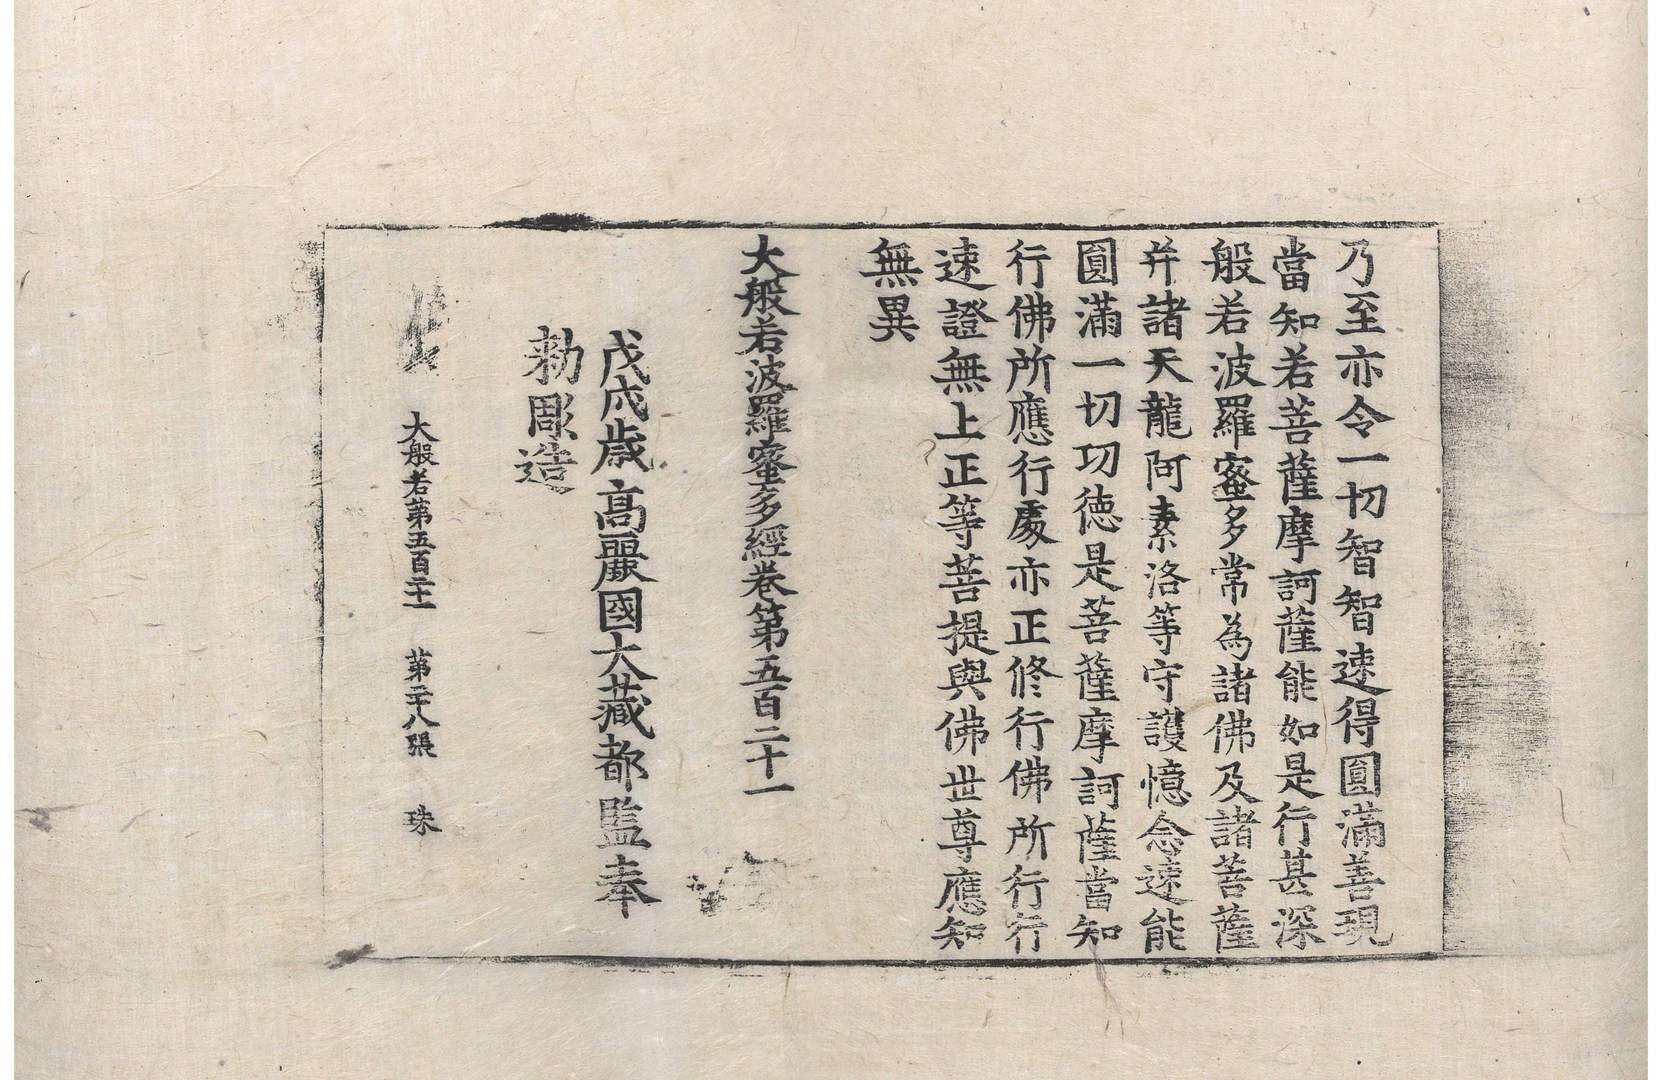 乃至亦令一切智智速得圓滿善現
當知若菩薩摩訶薩能如是行甚深
般若波羅蜜多常為諸佛及諸菩薩
幷諸天龍阿素洛等守護憶念速能
圓滿一切功徳是菩薩摩訶薩當知
行佛所應行處亦正修行佛所行行
速證無上正等菩提與佛世尊應知
無異
大般若波羅蜜多經卷第五百二十一
戊戌歲高麗國大藏都監奉
勑彫造
大般若第五百二十一 第二十八張 珠